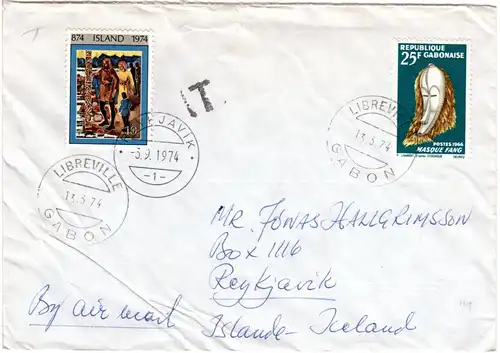 874 ISLAND 1974
10
REYKJAVIK
-5.9.1974
-1-
T
REPUBLIQUE
GABONAISE
25F
POSTES 1966
MASQUE FANG
LIBREVILLE
13.5.74
GABON
LIBREVILLE
13.5.74
GABON
MR. JÓNAS HALLGRIMSSON
BOX 1116
Reykjavik
Islande - Iceland
By air mail